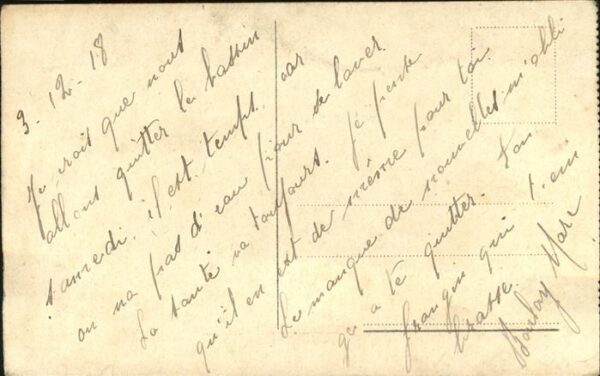 3-12-18
Je crois que nous
allons quitter le bassin
samedi, il est temps car
on na pas d'eau pour se laver
La santé va toujours. Je pense
qu'il en est de même pour toi
Le manque de nouvelles m'obli
ge a te quitter. Ton
frangin qui t'em
brasse.
Marc